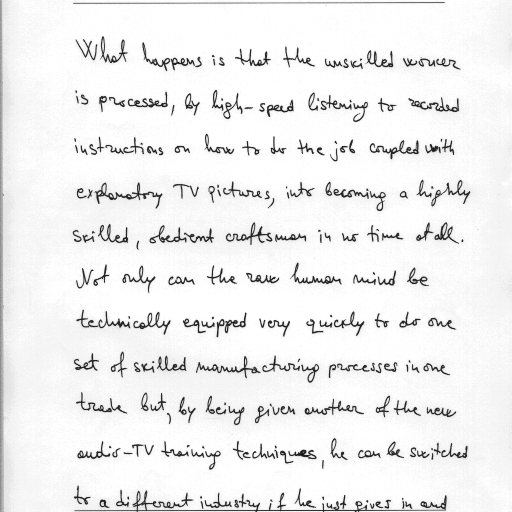 What happens is that the unskilled worker
is processed, by high-speed listening to recorded
instructions on how to do the job coupled with
explanatory TV pictures, into becoming a highly
skilled, obedient craftsman in no time at all.
Not only can the raw human mind be
technically equipped very quickly to do one
set of skilled manufacturing processes in one
trade but, by being given another of the new
audio-TV training techniques, he can be switched
to a different industry if he just gives in and